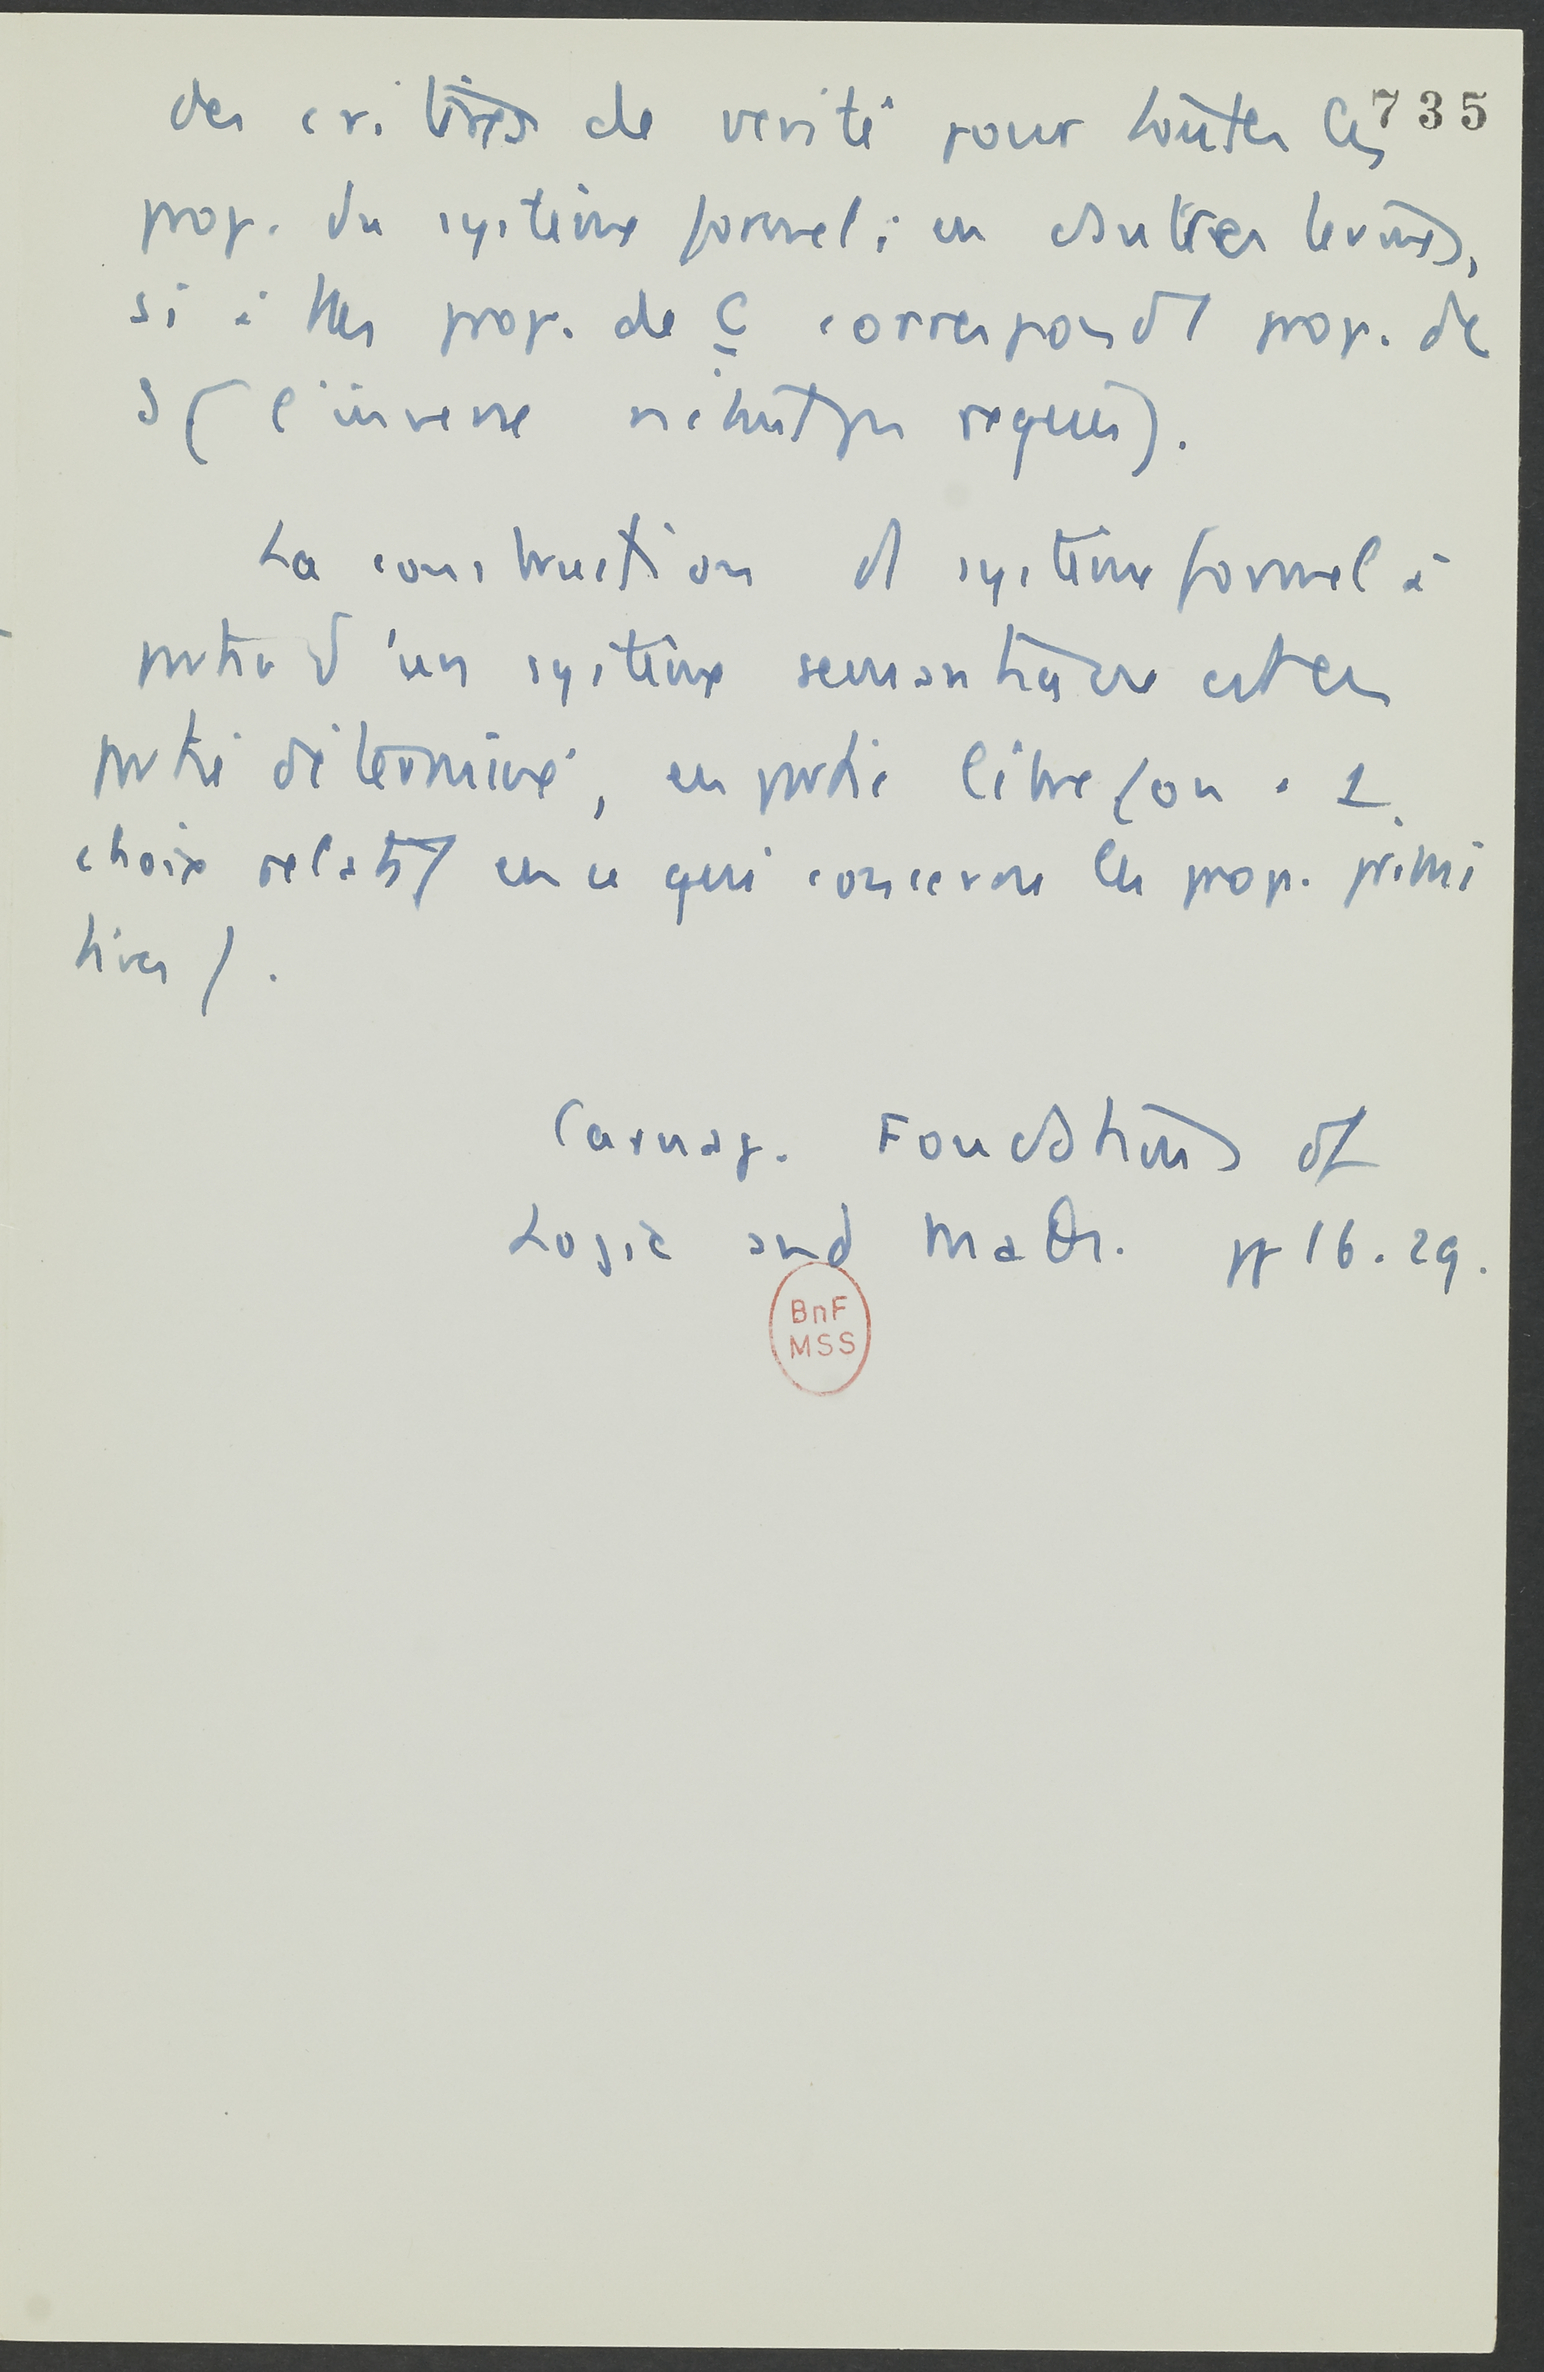 735
des critères de vérité pour toutes les
prop. du système formel ; en d'autres termes,
si à ttes prop. de C correspond prop. de
S (l'inverse n'étant pas requis).
La construction d système formel à
partir d'un système sémantique est en
partie déterminé, en partie libre (on a 1
choix relatif en ce qui concerne les prop. primi
tives).
Carnap. Foundations of
Logic and Math. pp 16.29.
BnF
MSS